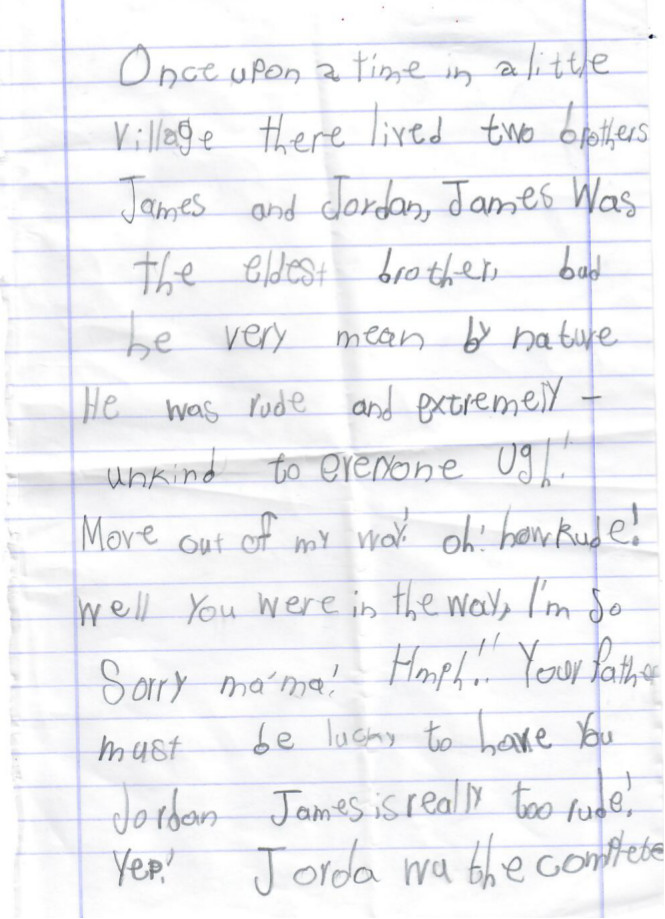 Once upon a time in a little
Village there lived two brothers
James and Jordan, James Was
the eldest brother, bud
he very mean by nature
He was rude and extremely -
unkind to everyone Ugh!
Move out of my way! oh! how Rude!
well You were in the way, I'm so
Sorry ma'ma! Hmph!! Your father
must be lucky to have You
Jordan James is really too rude!
Yep! Jorda wa the complete